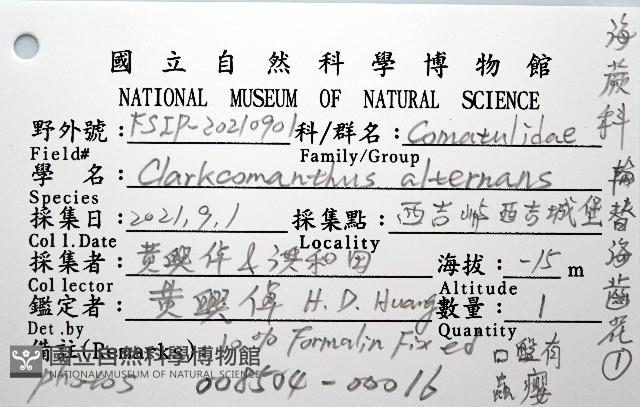 國立自然科學博物館
NATIONAL MUSEUM OF NATURAL SCIENCE
野外號：KSIP-20210901 科/群名：Comatulidae
Field# Family/Group
學 名：Clarkcomanthus alternans
Species
採集日：2021,9,1 採集點：西吉嶼西吉城堡
Col l. Date Locality
採集者：黃興倬 & 洪和田 海拔：-15 m
Col lector Altitude
鑑定者：黃興倬 H. D. Huang 數量：1
Det .by Quantity
備註(Remarks) 10% Formalin Fixed
photos 008504-00016
口器有
蟲癭
海蕨科 輪替海齒花①
國立自然科學博物館
NATIONAL MUSEUM OF NATURAL SCIENCE